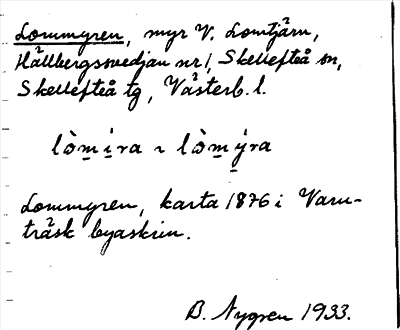 Lommyren, myr V. Lomtjärn,
Hällbergssvedjan nr 1, Skellefteå sn,
Skellefteå tg, Västerb. l.
lòm̱i̱ra ~ lòm̱ý̱ra
Lommyren, karta 1876 i Varu-
träsk byaskrin.
B. Nygren 1933.